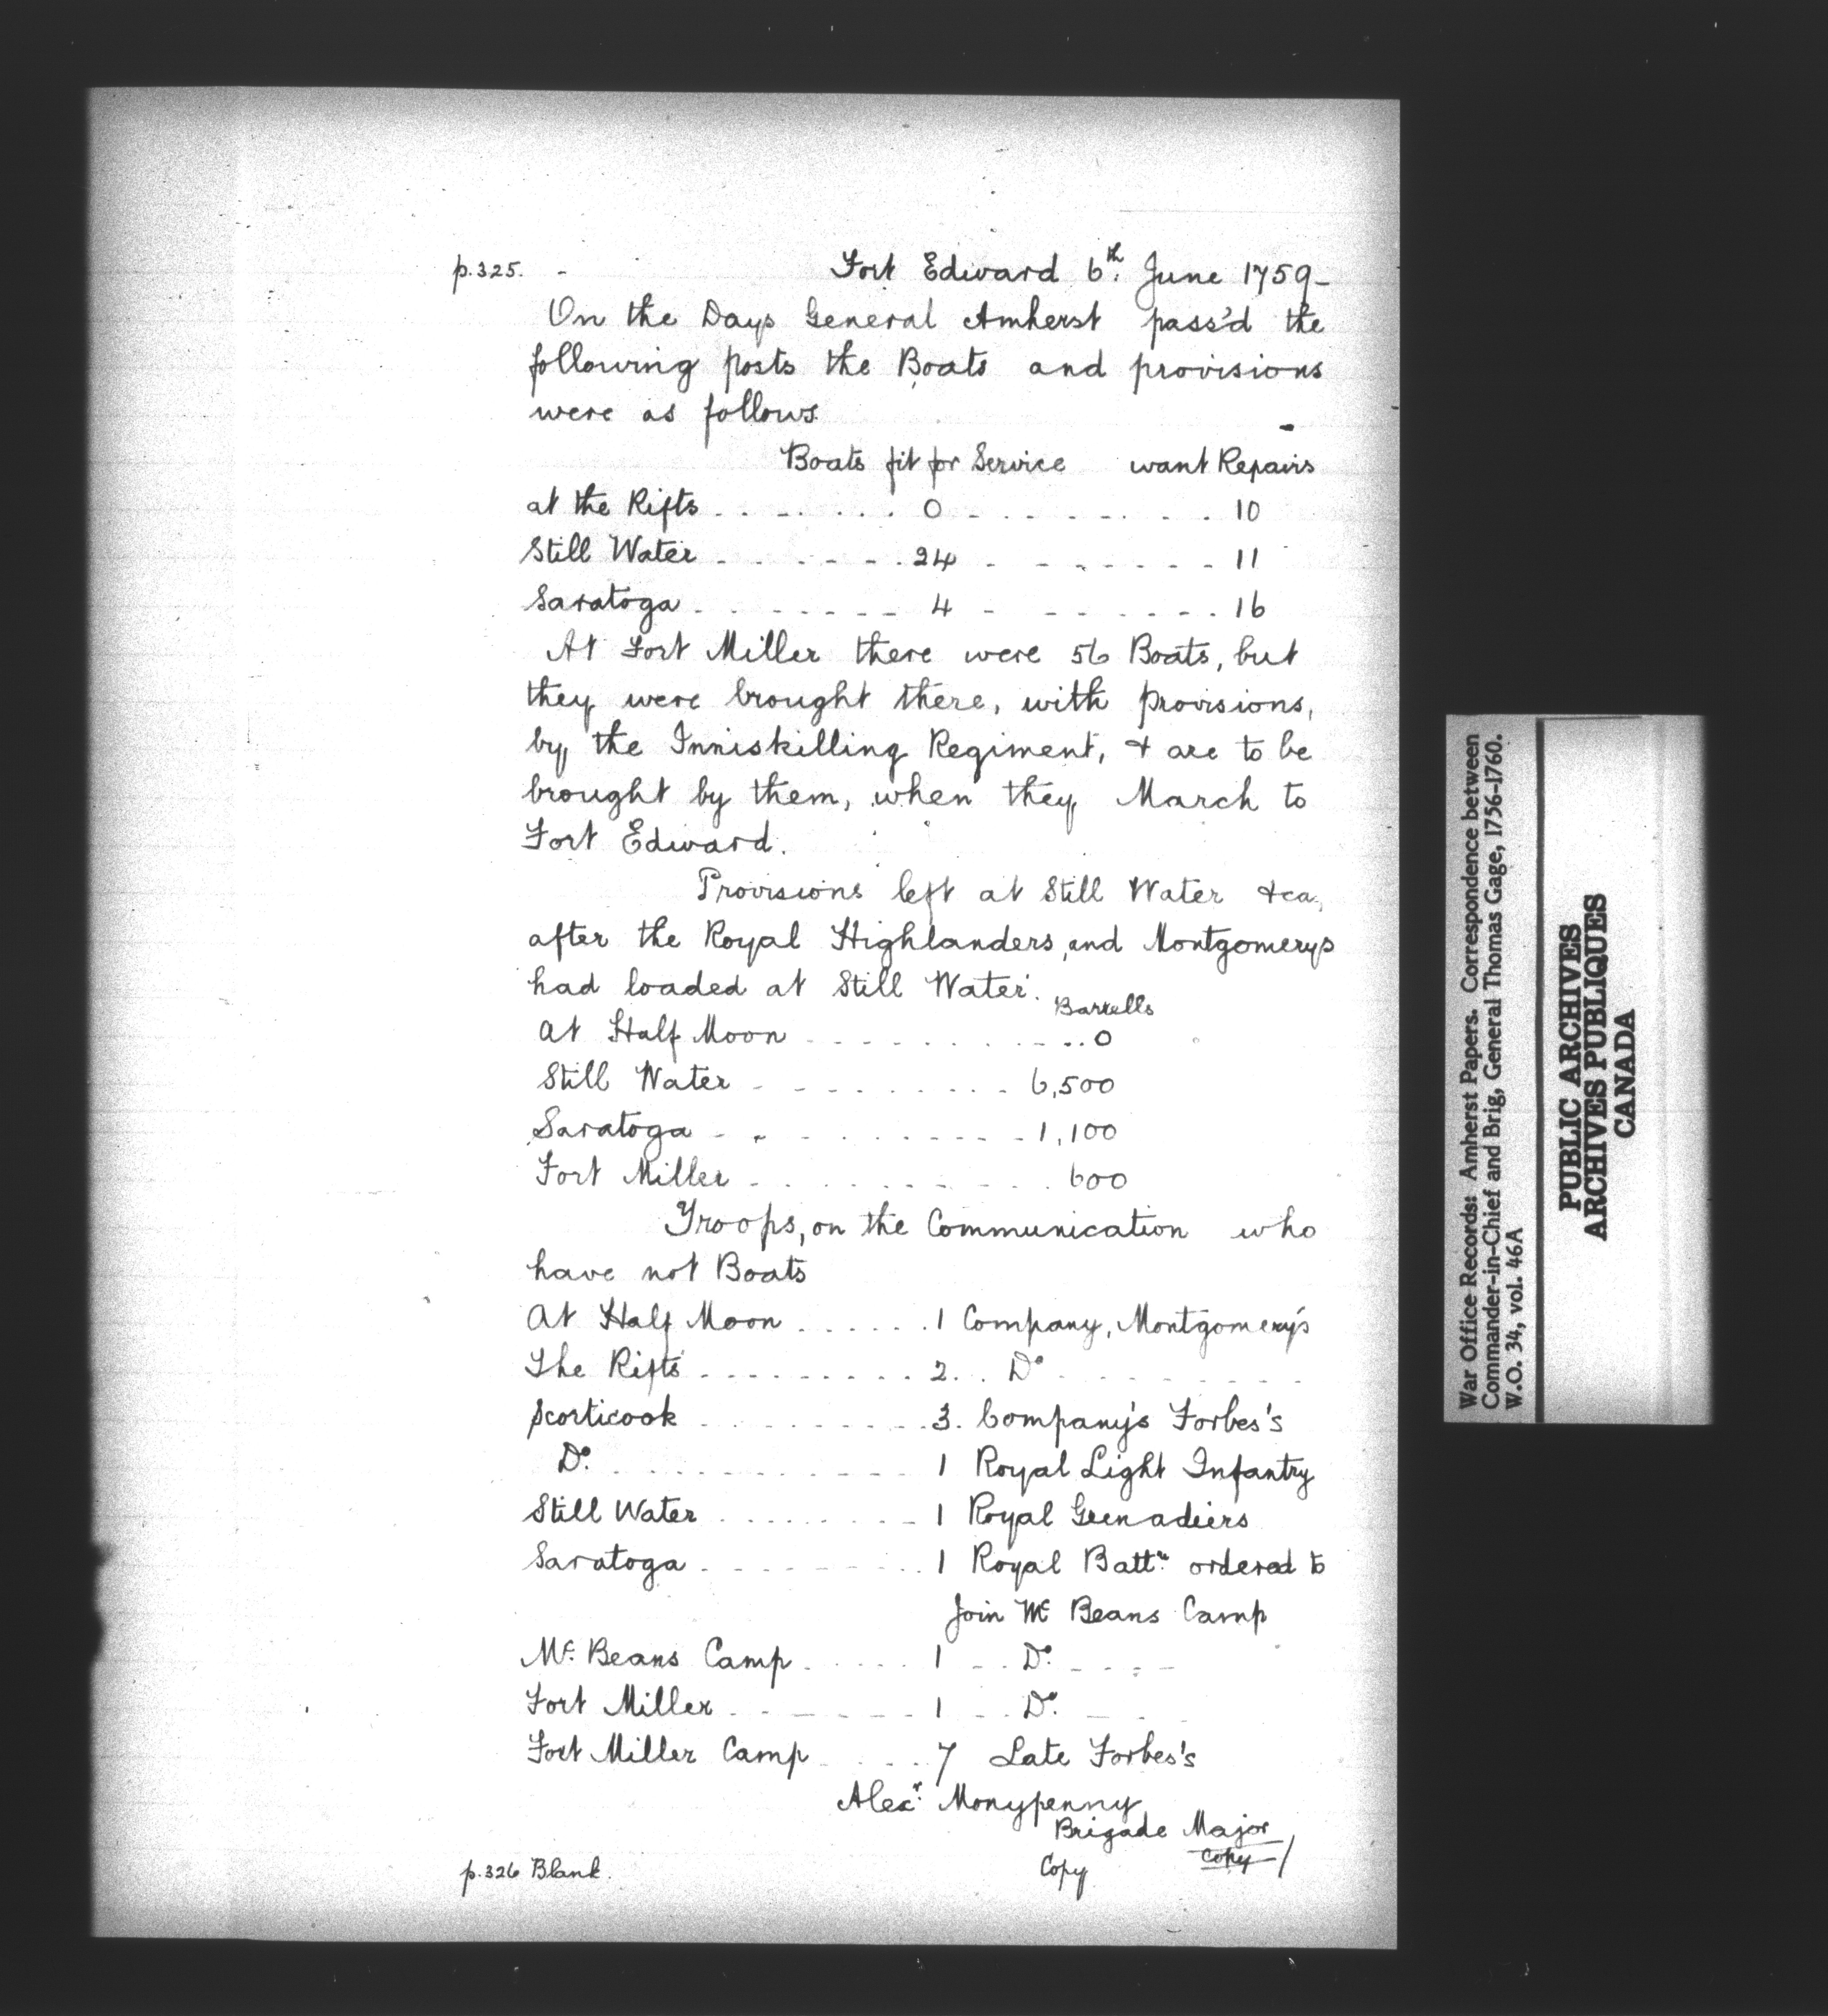 p.325. - Fort Edward 6th. June 1759-
On the Days General Amherst pass'd the
following posts the Boats and provisions
were as follows.
Boats fit for Service want Repairs
at the Rifts . . . . . . . . 0 - - - - - - - . 10
Still Water - - - - - - . 24 - - - - - - - 11
Saratoga - - - - - - - 4 - - - - - - . 16
At Fort Miller there were 56 Boats, but
they were brought there, with provisions,
by the Inniskilling Regiment, & are to be
brought by them, when they March to
Fort Edward.
Provisions left at Still Water &ca,
after the Royal Highlanders, and Montgomerys
had loaded at Still Water.
Barrells
At Half Moon - - - - - - - - - . . 0
Still Water - - - - - - - - - 6,500
Saratoga - - - - - - - - - - 1,100
Fort Miller - - - - - - - - - - 600
Troops, on the Communication who
have not Boats
At Half Moon . . . . . . . 1 Company, Montgomery's
The Rifts . . . . . . . . . . 2. . Do - - - - - - - -
Scorticook . . . . . . . . . . 3. Company's Forbes's
Do. . . . . . . . . . . . . 1 Royal Light Infantry
Still Water . . . . . . . . . 1 Royal Grenadiers
Saratoga . . . . . . . . . . 1 Royal Battn. ordered to
Join Mc Beans Camp
Mc. Beans Camp . . . . . 1 - . . Do. - - - -
Fort Miller - - - - - - - 1 - . . Do. - - -
Fort Miller Camp - . . . . 7 Late Forbes's
Alexr. Monypenny
Brigade Major
Copy /
Copy
p.326 Blank.
War Office Records: Amherst Papers. Correspondence between
Commander-in-Chief and Brig, General Thomas Gage, 1756-1760.
W.O. 34, vol. 46A
PUBLIC ARCHIVES
ARCHIVES PUBLIQUES
CANADA